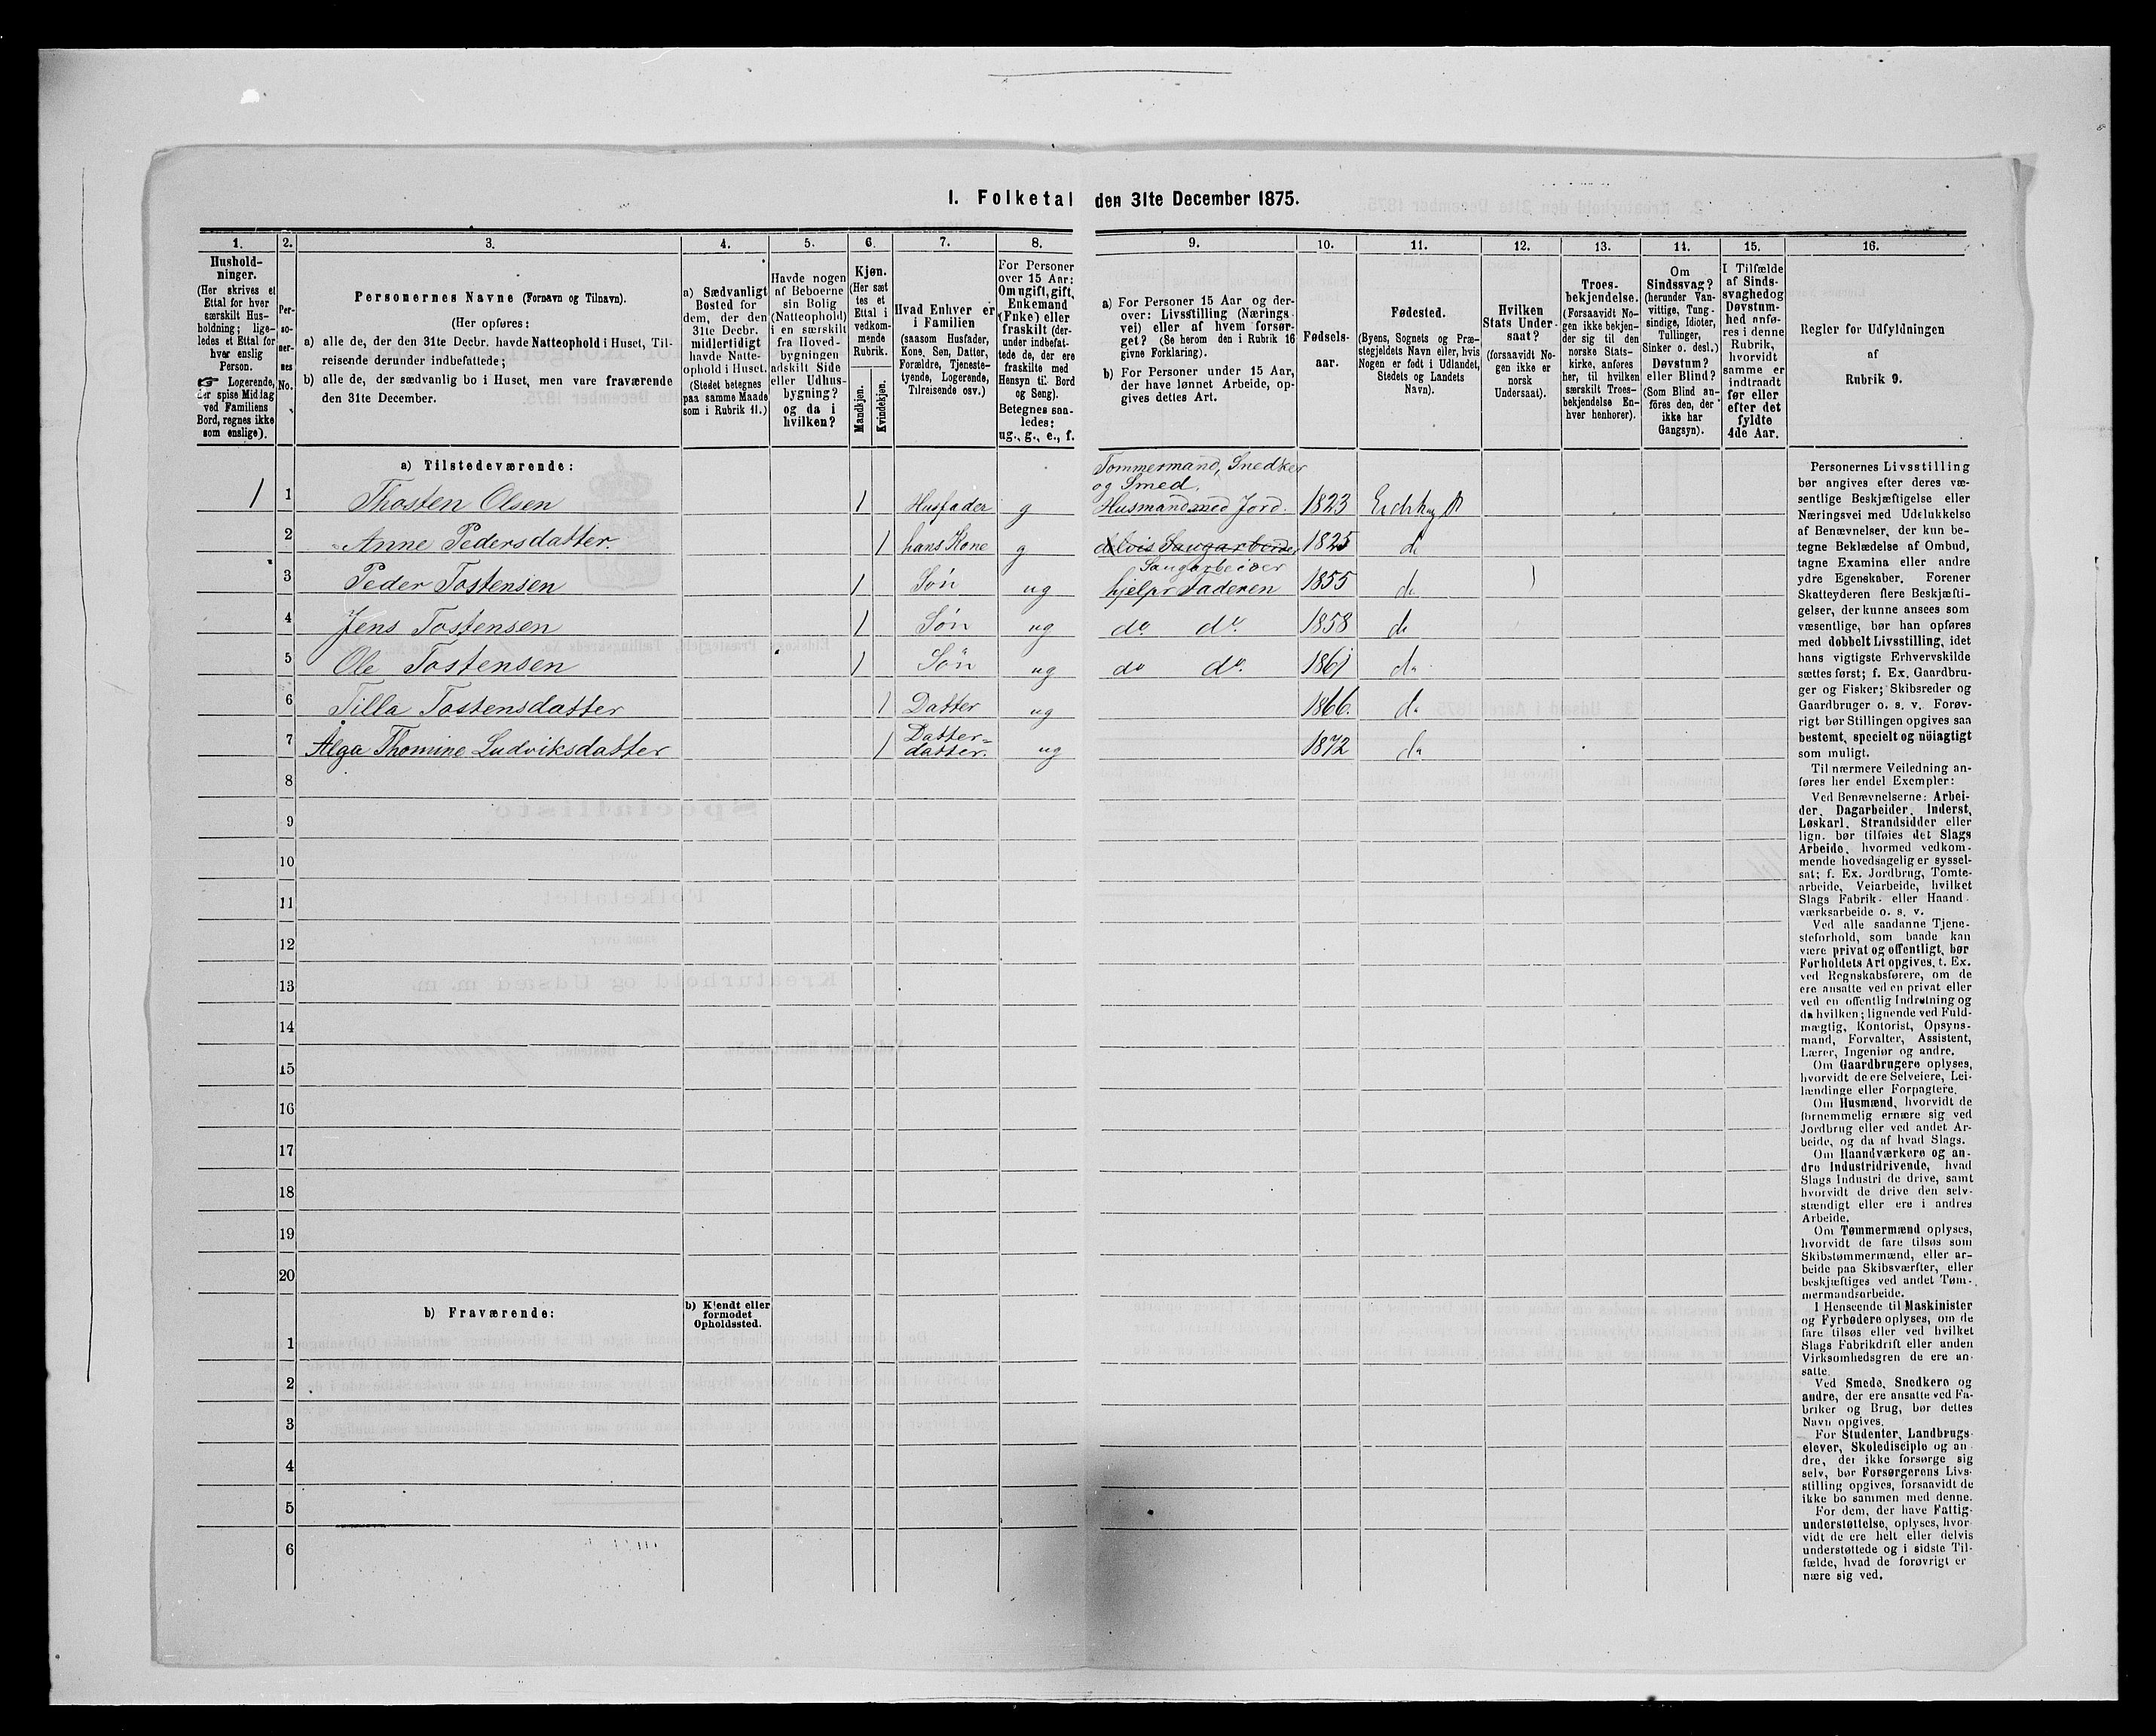 I. Folketal den 31te December 1875.
1. 2. 3. 4. 5. 6. 7. 8. 9. 10. 11. 12. 13. 14. 15. 16.
Hushold-
ninger.
(Her skrives et
Ettal for hver
særskilt Hus-
holdning; lige-
ledes et Ettal for
hver enslig
Person.
☞ Logerende,
der spise Middag
ved Familiens
Bord, regnes ikke
som enslige).
Per-
so-
ner-
nes
No.
Personernes Navne (Fornavn og Tilnavn).
(Her opføres:
a) alle de, der den 31te Decbr. havde Natteophold i Huset, Til-
reisende derunder indbefattede;
b) alle de, der sædvanlig bo i Huset, men vare fraværende
den 31te December.
a) Sædvanligt
Bosted for
dem, der den
31te Decbr.
midlertidigt
havde Natte-
ophold i Huset.
(Stedet betegnes
paa samme Maade
som i Rubrik 11.)
Havde nogen
af Beboerne
sin Bolig
(Natteophold)
i en særskilt
fra Hoved-
bygningen
adskilt Side
eller Udhus-
bygning?
og da i
hvilken?
Kjøn.
(Her sæt
tes et
Ettal i
vedkom-
mende
Rubrik.
Mandkjøn.
Kvindekjøn.
Hvad Enhver er
i Familien
(saasom Husfader,
Kone, Søn, Datter,
Forældre, Tjeneste-
tyende, Logerende,
Tilreisende osv.)
For Personer
over 15 Aar:
Om ugift, gift,
Enkemand
(Enke) eller
fraskilt (der-
under indbefat-
tede de, der ere
fraskilte med
Hensyn til Bord
og Seng).
Betegnes saa-
ledes:
ug., g., e., f.
a) For Personer 15 Aar og der-
over: Livsstilling (Nærings
vei) eller af hvem forsør-
get? (Se herom den i Rubrik 16
givne Forklaring).
b) For Personer under 15 Aar,
der have lønnet Arbeide, op-
gives dettes Art.
Fødsels-
aar.
Fødested.
(Byens, Sognets og Præ-
stegjeldets Navn eller, hvis
Nogen er født i Udlandet,
Stedets og Landets
Navn).
Hvilken
Stats Under-
saat?
(forsaavidt No-
gen ikke er
norsk
Undersaat).
Troes-
bekjendelse.
(Forsaavidt No-
gen ikke bekjen-
der sig til den
norske Stats-
kirke, anføres
her, til hvilken
særskilt Troes-
bekjendelse En-
hver henhorer).
Om
Sindssvag?
(herunder Van-
vittige, Tung-
sindige, Idioter,
Tullinger,
Sinker o. desl.)
Døvstum?
eller Blind?
(Som Blind an-
føres den, der
ikke har
Gangsyn).
I Tilfælde
af Sinds-
svaghed og
Døvstum-
hed anfø-
res i denne
Rubrik,
hvorvidt
samme er
indtraadt
før eller
efter det
fyldte
4de Aar.
Regler for Udfyldningen
af
Rubrik 9.
a) Tilstedeværende:
Tommermand, Snedker
og Smed.
1 1 Thosten Olsen 1 Husfader g Husmand med Jord. 1823
2 Anne Pedersdatter. 1 hans Kone g delvis Saugarbeider 1825 do
Saugarbeider
3 Peder Tostensen 1 Søn ug hjelpr Faderen 1855 do
4 Jens Tostensen 1 Søn ug do. do. 1858 do
5 Ole Tostensen 1 Søn ug do do. 1861 do
6 Tilla Tostensdatter 1 Datter ug 1866. do
7 Alga Thomine Ludviksdatter 1 Datter-
datter. ug 1872 do
8
9
10
11
12
13
14
15
16
17
18
19
20
b) Fraværende:
b) Kjendt eller
formodet
Opholdssted.
1
2
3
4
5
6
Personernes Livsstilling
bør angives efter deres væ-
sentlige Beskjæftigelse eller
Næringsvei med Udelukkelse
af Benævnelser, der kun be-
tegne Beklædelse af Ombud,
tagne Examina eller andre
ydre Egenskaber. Forener
Skatteyderen flere Beskjæfti-
gelser, der kunne ansees som
væsentlige, bør han opføres
med dobbelt Livsstilling, idet
hans vigtigste Erhvervskilde
sættes først; f. Ex. Gaardbru-
ger og Fisker; Skibsreder og
Gaardbruger o. s. v. Forøv-
rigt bør Stillingen opgives saa
bestemt, specielt og nöiagtigt
som muligt.
Til nærmere Veiledning an-
føres her endel Exempler:
Ved Benævnelserne: Arbei-
der, Dagarbeider, Inderst,
Løskarl, Strandsidder eller
lign. bør tilføies det Slags
Arbeide, hvormed vedkom-
mende hovedsagelig er syssel-
sat; f. Ex. Jordbrug, Tomte-
arbeide, Veiarbeide, hvilket
Slags Fabrik- eller Haand-
værksarbeide o. s. v.
Ved alle saadanne Tjene-
steforhold, som baade kan
være privat og offentligt, bør
Forholdets Art opgives, t. Ex.
ved Regnskabsførere, om de
ere ansatte ved en privat eller
ved en offentlig Indretning og
da hvilken; lignende ved Fuld-
mægtig, Kontorist, Opsyns-
mand, Forvalter, Assistent,
Lærer, Ingeniør og andre.
Om Gaardbrugere oplyses,
hvorvidt de ere Selveiere, Lei-
lændinge eller Forpagtere.
Om Husmænd, hvorvidt de
fornemmelig ernære sig ved
Jordbrug eller ved andet Ar-
beide, og da af hvad Slags.
Om Haandværkere og an-
dre Industridrivende, hvad
Slags Industri de drive, samt
hvorvidt de drive den selv-
stændigt eller ere i andres
Arbeide.
Om Tømmermænd oplyses,
hvorvidt de fare tilsøs som
Skibstømmermænd, eller ar-
beide paa Skibsværfter, eller
beskjæftiges ved andet Tøm-
mermandsarbeide.
I Henseende til Maskinister
og Fyrbødere oplyses, om de
fare tilsøs eller ved hvilket
Slags Fabrikdrift eller anden
Virksomhedsgren de ere an-
satte.
Ved Smede, Snedkere og
andre, der ere ansatte ved Fa-
briker og Brug, bør dettes
Navn opgives.
For Studenter, Landbrugs-
elever, Skoledisciple og an-
dre, der ikke forsørge sig
selv, bør Forsørgerens Livs-
stilling opgives, forsaavidt de
ikke bo sammen med denne.
For dem, der have Fattig-
understøttelse, oplyses, hvor-
vidt de ere helt eller delvis
understøttede og i sidste Til-
fælde, hvad de forøvrigt er
nære sig ved.